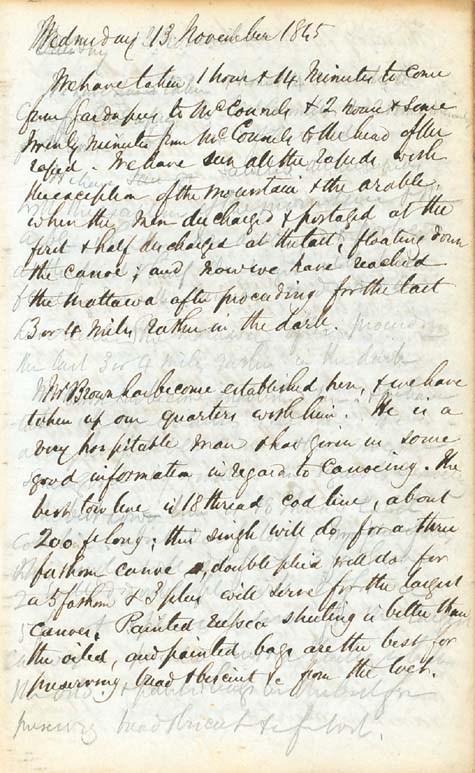 Wednesday 13 November 1845
We have taken 1 hour & 14 Minutes to come
from to McConnels & 2 hours & some
twenty minutes from McConnels to the head of the
rapid. We have run all the rapids with
the exception of the mountain & the arable,
when the men discharged & portaged at the
first & half discharged at the last; floating down
the canoe; and now we have reached
the Mattawa after proceeding for the last
3 or 4 miles rather in the dark.
the last 3 or 4 miles rather in the dark
Mr Brown has become established here, & we have
taken up our quarters with him. He is a
very hospitable man & has given us some
good information in regard to canoeing. The
best tow line is 18 thread cod line, about
200 f long; this single will do for a three
fathom canoe, double plied will do for
a 5 fathom & 3 plies will serve for the largest
canoes. Painted Russia sheeting is better than
the oiled, and painted bags are the best for
preserving bread & biscuit &c from the wet.
preserving bread & biscuit &c